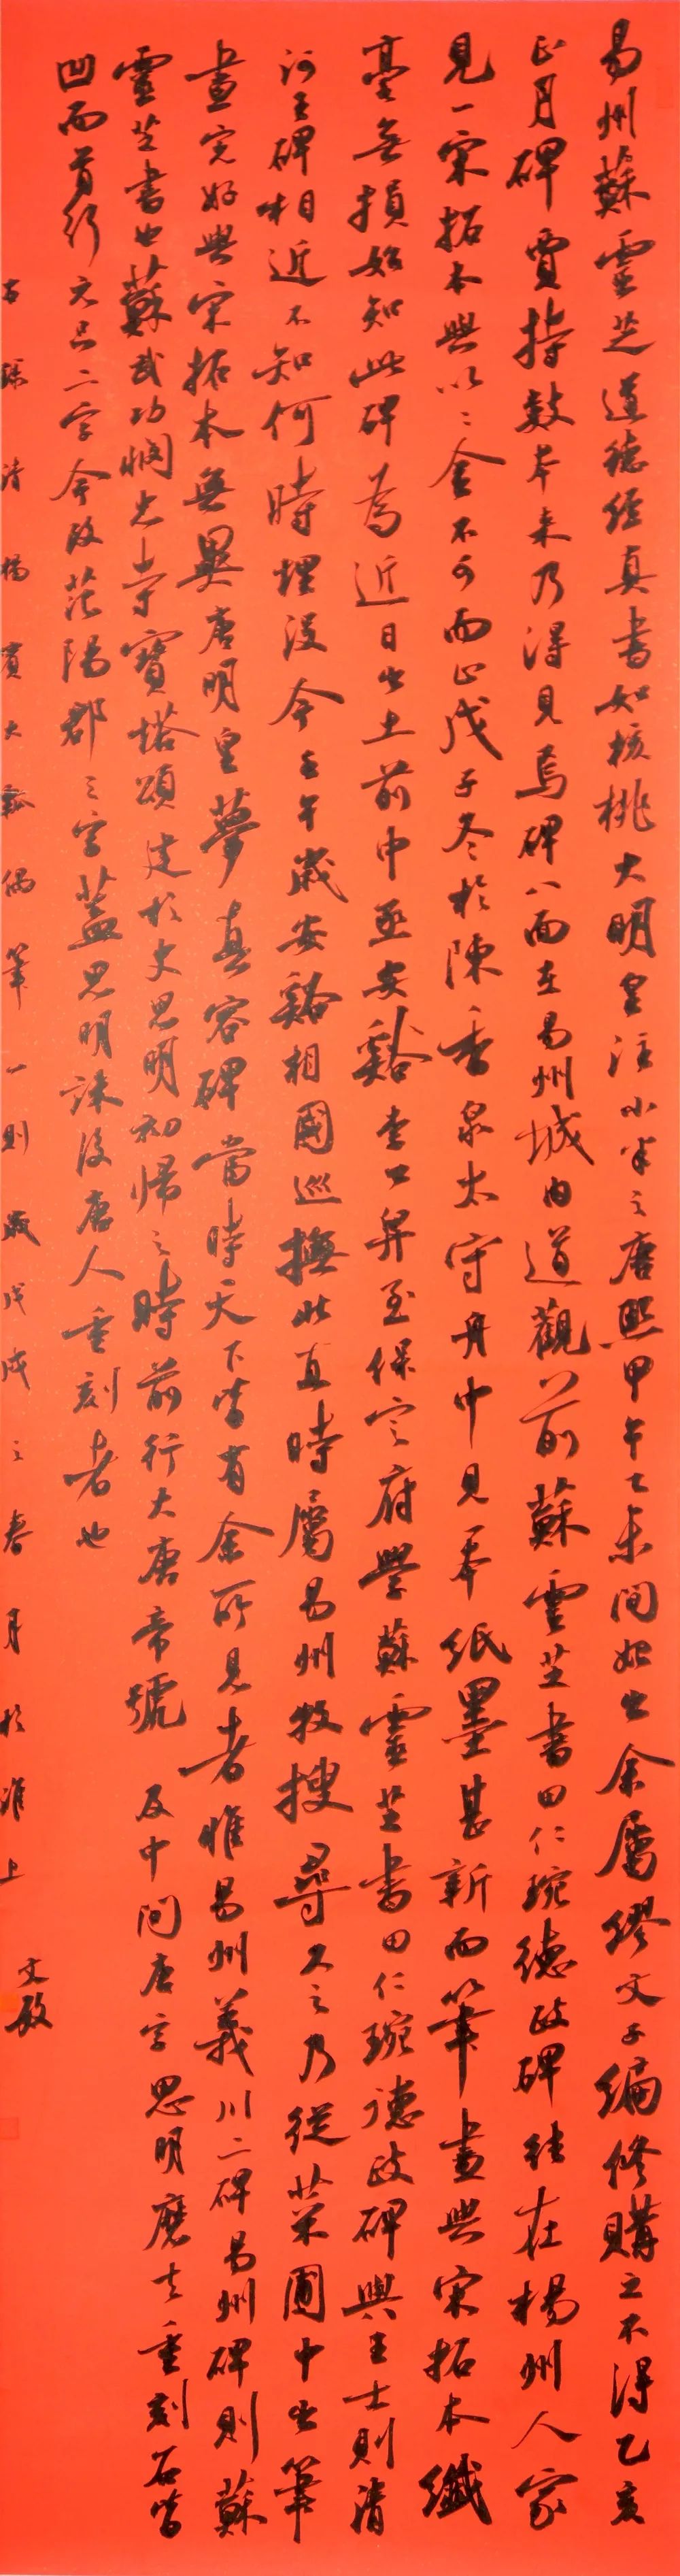 易州蘇靈芝道德經真書如核桃大明皇注小半之唐熙甲午乙未間始出余屬繆文子編修購之不得乙亥
正月碑賈持數本来乃得見焉碑八面在易州城内道觀前蘇靈芝書田仁琬德政碑往在楊州人家
見一宋拓本與以二金不可而止戊子冬於陳香泉太守舟中見一本紙墨甚新而筆畫與宋拓本纖
毫無損始知此碑為近日出土前中丞安谿李公昇至保定府學蘇靈芝書田仁琬德政碑與王士則清
河王碑相近不知何時埋没今壬午歲安谿相國巡撫北直時屬易州牧搜尋久之乃從菜圃中出筆
畫完好與宋拓本無異唐明皇夢真容碑當時天下皆有余所見者惟易州義川二碑易州碑則蘇
靈芝書也蘇武功憫忠寺寶塔頌建於史思明初歸之時前行大唐帝號 及中間唐字思明磨去重刻石皆
凹而首行元己二字今改范陽郡三字蓋思明誅後唐人重刻者也
右録清楊賓大瓢偶筆一則歲戊戌之春月於淮上
文啟